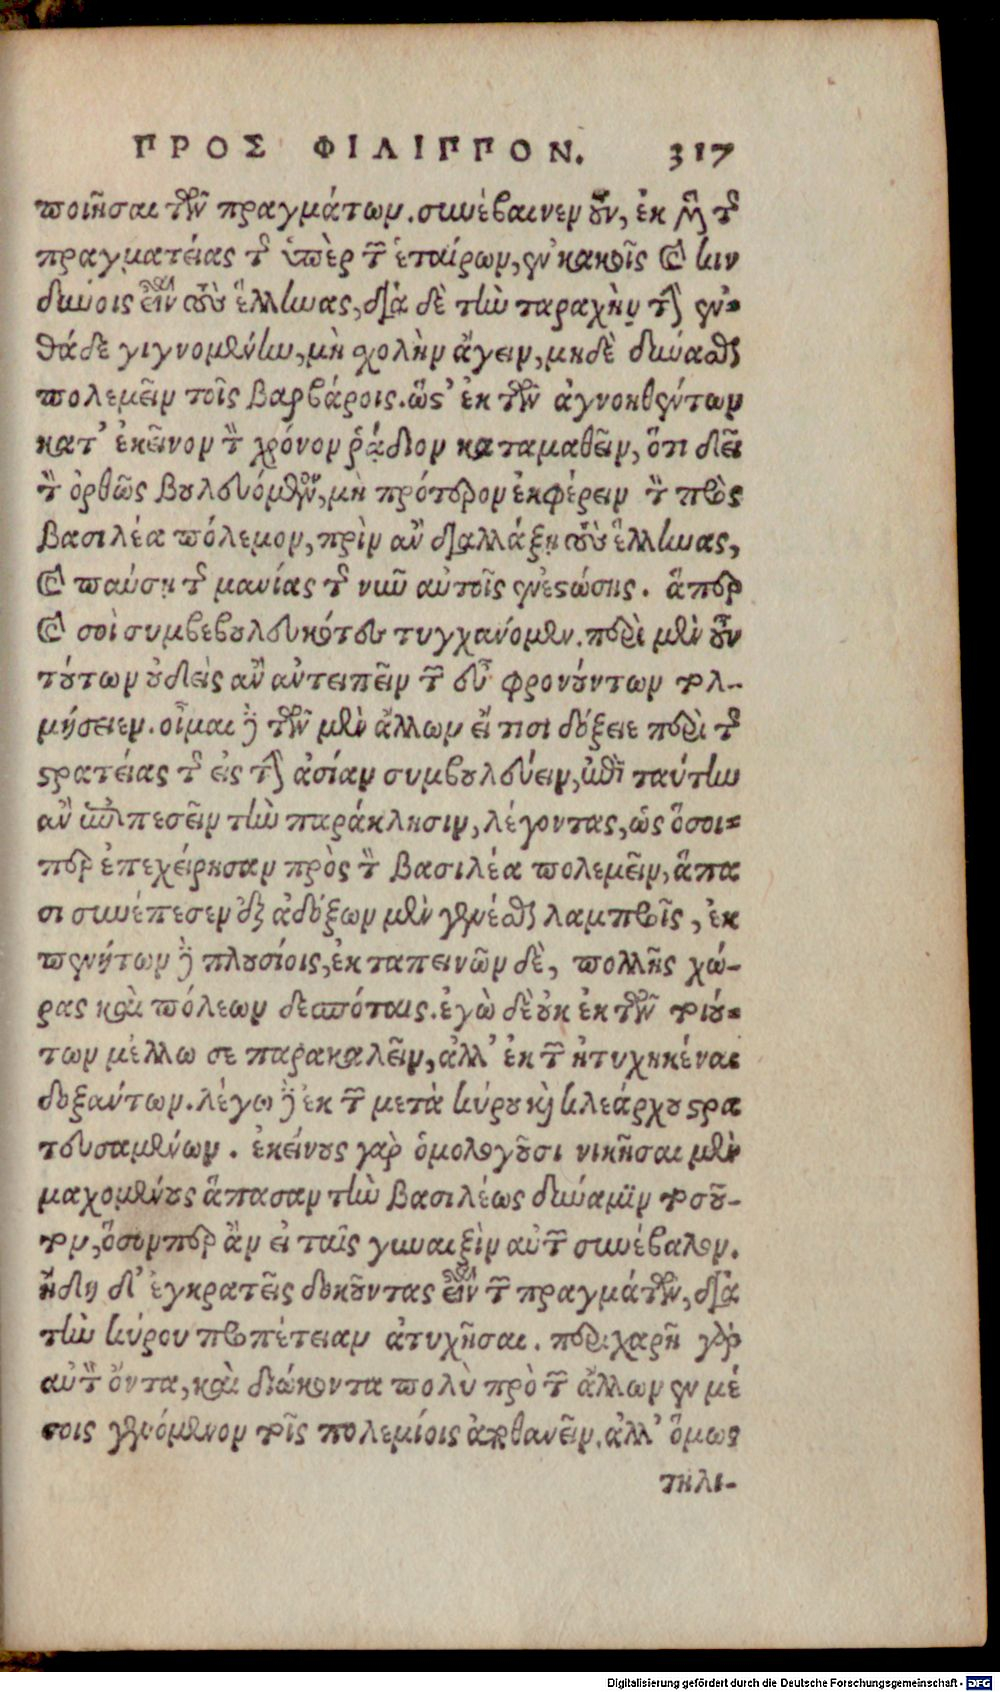 ΠΡΟΣ ΦΙΛΙΠΠΟΝ. 317
ποιῆσαι τῶν πραγμάτων. συνέβαινεν οὖν, ἐκ μὲν τῆς
πραγματείας τῆς ὑπὲρ τῶν ἑταίρων, ἐν κακοῖς καὶ κιν
δύνοις εἶναι τοὺς ἕλληνας, διὰ δὲ τὴν ταραχὴν τὴν ἐν-
θάδε γιγνομένην, μὴ σχολὴν ἄγειν, μηδὲ δύνασθαι
πολεμεῖν τοῖς βαρβάροις. ὥστ' ἐκ τῶν ἀγνοηθέντων
κατ' ἐκεῖνον τὸν χρόνον ῥᾴδιον καταμαθεῖν, ὅτι δεῖ
τὸν ὀρθῶς βουλευόμενον, μὴ πρότερον ἐκφέρειν τὸν πρὸς
βασιλέα πόλεμον, πρὶν ἂν διαλλάξῃ τοὺς ἕλληνας,
καὶ παύσῃ τῆς μανίας τῆς νῦν αὐτοῖς ἐνεστώσης. ἅπερ
καὶ σοὶ συμβεβουλευκότες τυγχάνομεν. περὶ μὲν οὖν
τούτων οὐδεὶς ἂν ἀντειπεῖν τῶν εὖ φρονούντων τολ-
μήσειεν. οἶμαι δὲ τῶν μὲν ἄλλων εἴ τισι δόξειε περὶ τῆς
στρατείας τῆς εἰς τὴν ἀσίαν συμβουλεύειν, ἐπὶ ταύτην
ἂν ἐπιπεσεῖν τὴν παράκλησιν, λέγοντας, ὡς ὅσοι-
περ ἐπεχείρησαν πρὸς τὸν βασιλέα πολεμεῖν, ἅπα
σι συνέπεσεν ἐξ ἀδόξων μὲν γενέσθαι λαμπροῖς, ἐκ
πενήτων δὲ πλουσίοις, ἐκ ταπεινῶν δὲ, πολλῆς χώ-
ρας καὶ πόλεων δεσπόταις. ἐγὼ δὲ οὐκ ἐκ τῶν τοιού-
των μέλλω σε παρακαλεῖν, ἀλλ' ἐκ τῶν ἠτυχηκέναι
δοξάντων. λέγω δὲ ἐκ τῶν μετὰ κύρου καὶ κλεάρχου στρα
τευσαμένων. ἐκείνους γὰρ ὁμολογοῦσι νικῆσαι μὲν
μαχομένους ἅπασαν τὴν βασιλέως δύναμιν τοσοῦ-
τον, ὅσονπερ ἂν εἰ ταῖς γυναιξὶν αὐτῶν συνέβαλον.
ἤδη δ' ἐγκρατεῖς δοκοῦντας εἶναι τῶν πραγμάτων, διὰ
τὴν κύρου προπέτειαν ἀτυχῆσαι. περιχαρῆ γὰρ
αὐτὸν ὄντα, καὶ διώκοντα πολὺ πρὸ τῶν ἄλλων ἐν μέ
σοις γενόμενον τοῖς πολεμίοις ἀποθανεῖν. ἀλλ' ὅμως
τηλι-
Digitalisierung gefördert durch die Deutsche Forschungsgemeinschaft - DFG